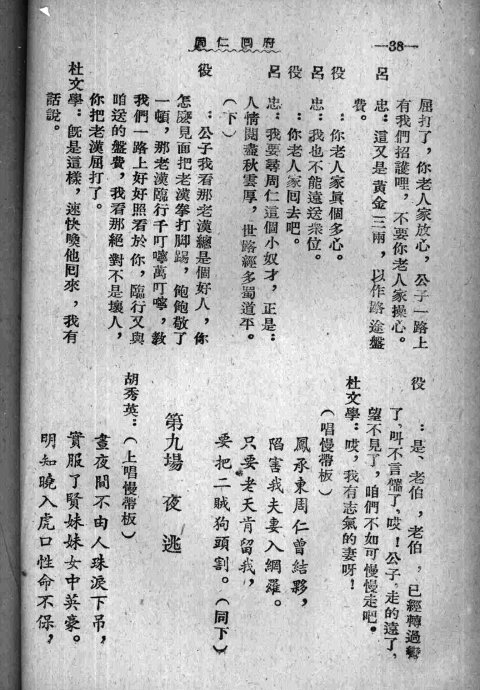 周仁回府
—38—
屈打了，你老人家放心，公子一路上
有我們招護哩，不要你老人家操心。
呂　忠：這又是黃金三兩，以作路途盤
費。
役　：你老人家眞個多心。
呂　忠：我也不能遠送衆位。
役　：你老人家回去吧。
呂　忠：我要尋周仁這個小奴才，正是：
人情閱盡秋雲厚，世路經多蜀道平。
（下）
役　：公子我看那老漢總是個好人，你
怎麽見面把老漢拳打脚踢，飽飽敬了
一頓，那老漢臨行千叮嚀萬叮嚀，教
我們一路上好好照看於你，臨行又與
咱送的盤費，我看那絕對不是壞人，
你把老漢屈打了。
杜文學：旣是這樣，速快喚他回來，我有
話說。
役　：是、老伯，老伯，已經轉過彎
了，呌不言喘了，哎！公子，走的遠了，
望不見了，咱們不如可慢慢走吧。
杜文學：哎，我有志氣的妻呀！
（唱慢帶板）
鳳承東周仁曾結夥，
陷害我夫妻入網羅。
只要老天肯留我，
要把二賊狗頭割。（同下）
第九場　夜逃
胡秀英：（上唱慢帶板）
晝夜間不由人珠淚下吊，
實服了賢妹妹女中英豪。
明知曉入虎口性命不保，